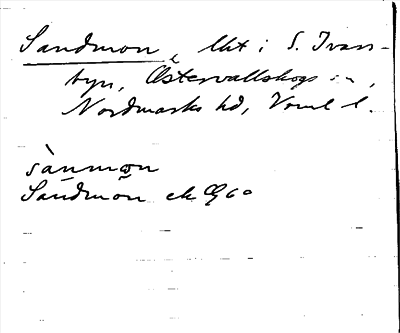 Sandmon, lht i S. Ivars-
byn, Östervallskogs sn,
Nordmarks hd, Vrml l.
sànmωn
Sandmon ek Ö60